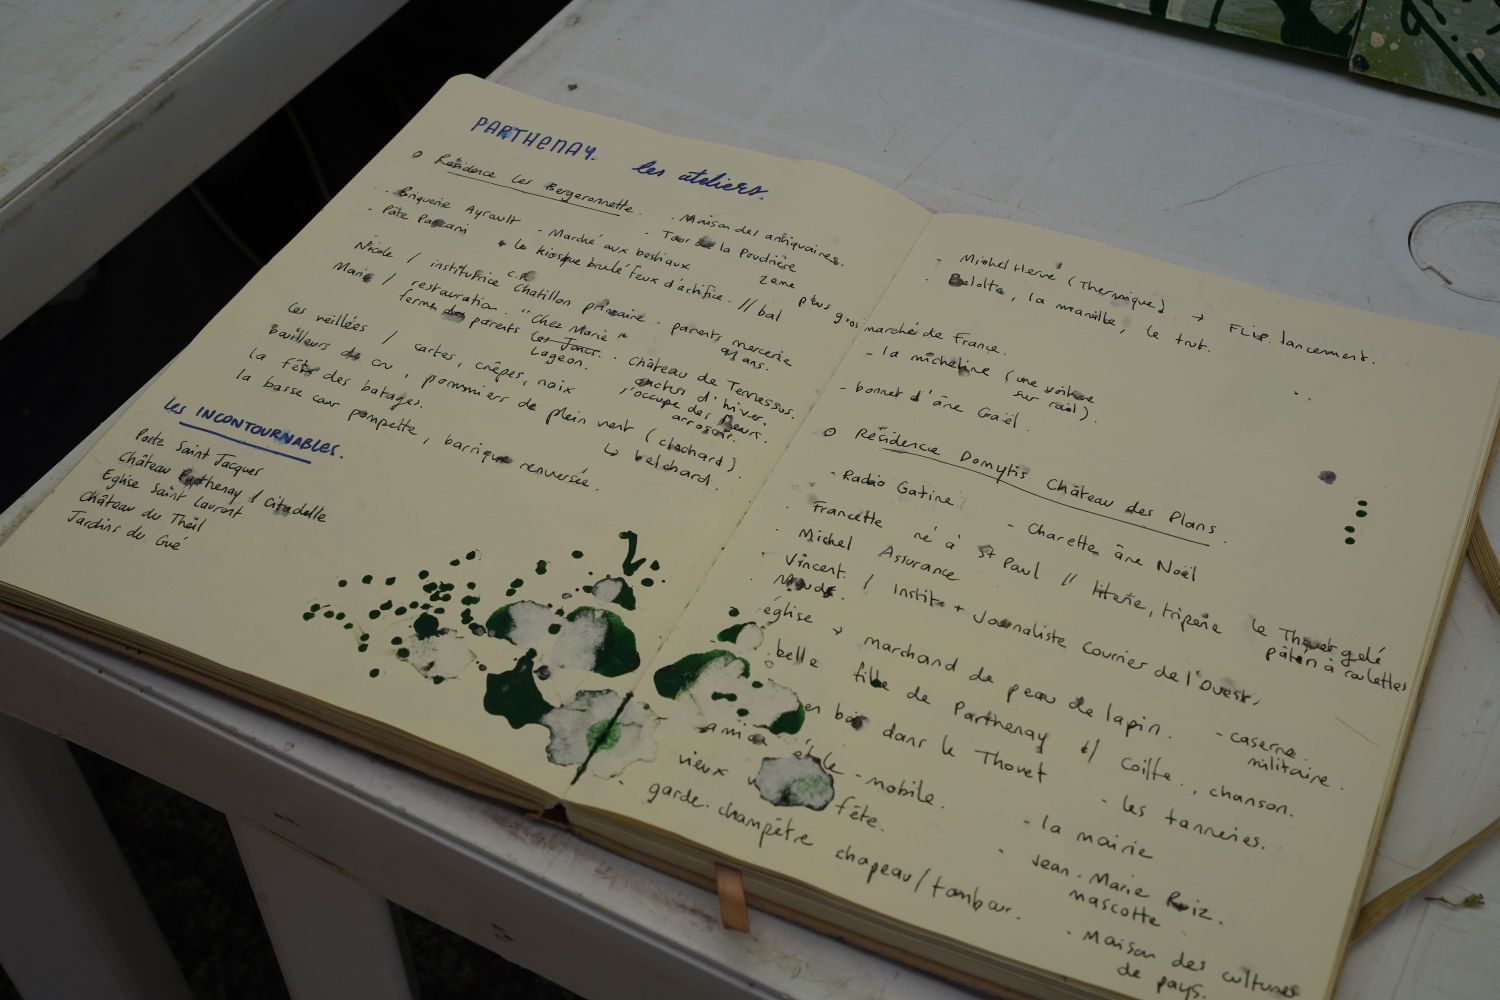 PARTHENAY. les ateliers.
Résidence Les Bergeronnette.
- Maison des antiquaires.
- Briqueterie Ayrault - Marché aux bestiaux - Tour de la Poudrière
- Pâte 2ème plus gros marché de France.
le kiosque brulé feux d'artifice. // bal
Nicole / institutrice c.p. Chatillon primaire. parents mercerie
Marie / restauration. "Chez Marie" 91 ans.
ferme des parents Lageon. Château de Tennessus.
cactus d'hiver.
s'occupe des fleurs.
arrosoir.
Les veillées / cartes, crêpes, noix
Bouilleurs de cru, pommiers de plein vent (clochard)
↳ belchard.
la fête des batages.
la basse cour pompette, barrique renversée.
Les INCONTOURNABLES.
Porte Saint Jacques
Château Parthenay / Citadelle
Eglise Saint Laurent
Château du Theil
Jardins du Gué
- Michel Hervé (Thermique) → FLIP. lancement.
- Belotte, la manille, le trut.
- la micheline (une voiture
sur rail).
- bonnet d'âne Gaël.
Résidence Domytis Château des Plans.
- Radio Gatine - Charette âne Noël
Francette né à St Paul // literie, triperie le Thouet gelé
patin à roulettes
Michel Assurance.
Vincent. / Instit + Journaliste Courrier de l'Ouest,
Maude.
église → marchand de peau de lapin. - caserne
militaire.
belle fille de Parthenay // Coiffe, chanson.
en bas dans le Thouet - les tanneries.
- mobile. - la mairie
vieux fête. - Jean-Marie Ruiz.
mascotte
- garde-champêtre chapeau/tambour.
- Maison des cultures
de pays.